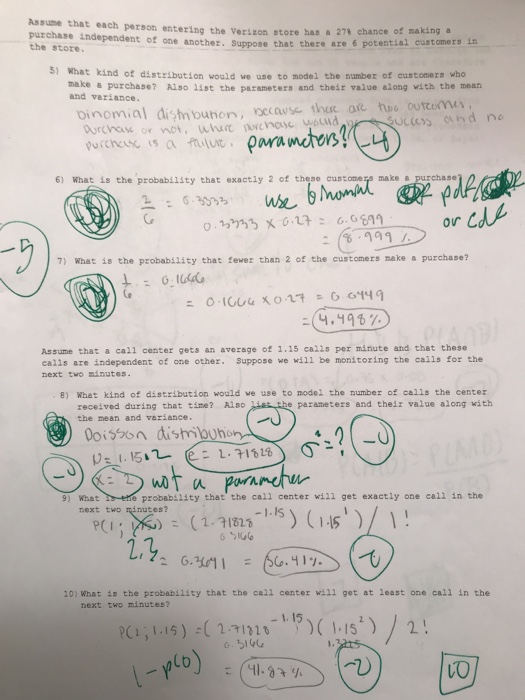 Assume that each person entering the Verizon store has a 27% chance of making a
purchase independent of one another. Suppose that there are 6 potential customers in
the store.
5) What kind of distribution would we use to model the number of customers who
make a purchase? Also list the parameters and their value along with the mean
and variance.
Binomial distribution, because there are two outcomes,
purchase or not, where purchase would success and no
purchase is a failure. parameters? -4
6) What is the probability that exactly 2 of these customers make a purchase?
2/6 = 0.3333 use binomial pdf
0.3333 x 0.27 = 0.0899 or cdf
= 8.999%
-5
7) What is the probability that fewer than 2 of the customers make a purchase?
1/6 = 0.1666
= 0.1666 x 0.27 = 0.0449
= 4.498%
Assume that a call center gets an average of 1.15 calls per minute and that these
calls are independent of one other. Suppose we will be monitoring the calls for the
next two minutes.
8) What kind of distribution would we use to model the number of calls the center
received during that time? Also list the parameters and their value along with
the mean and variance.
Poisson distribution
1.15•2 e = 2.71828 σ²=?
x = 2 not a parameter
9) What is the probability that the call center will get exactly one call in the
next two minutes?
P(1; ) = (2.71828 -1.15)(1.15¹)/1!
0.3166
2.3 = 0.3641 = 36.41%
10) What is the probability that the call center will get at least one call in the
next two minutes?
P(2; 1.15) = (2.71828 -1.15)(1.15²)/2!
0.3166 1.3225
1-p(0) = 41.87% -2